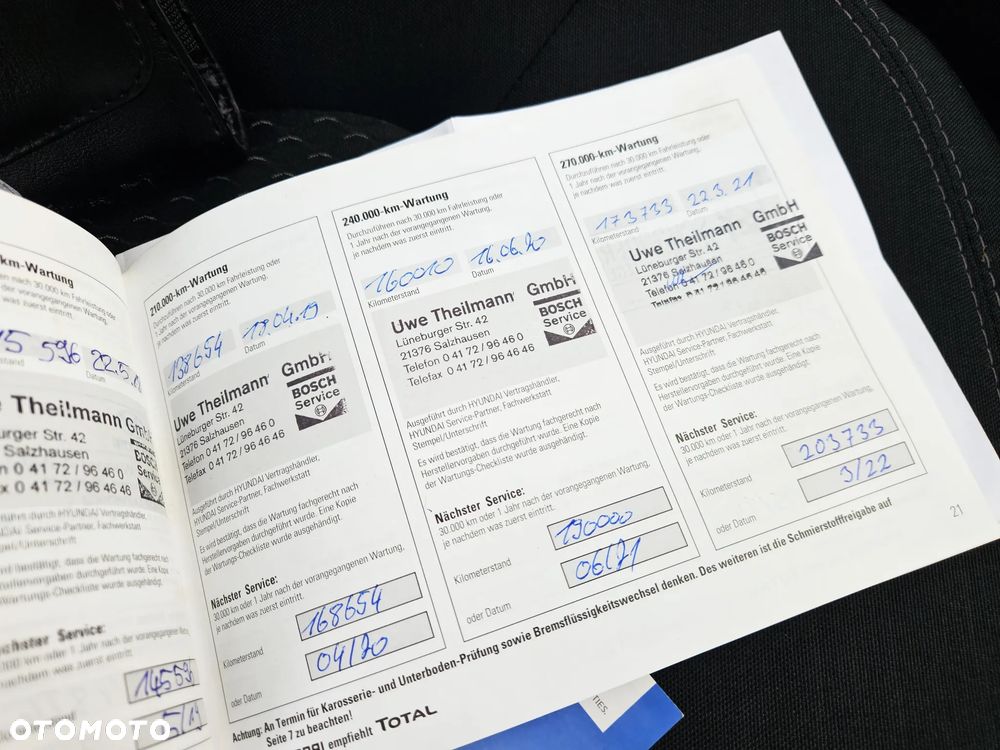 km-Wartung
596 22.5.
Theilmann GmbH
Str. 42
Salzhausen
0 41 72 / 96 46 0
0 41 72 / 96 46 46
BOSCH
Service
HYUNDAI Vertragshändler,
Service-Partner, Fachwerkstatt
Service:
145596
210.000-km-Wartung
Durchzuführen nach 30.000 km Fahrleistung oder
1 Jahr nach der vorangegangenen Wartung,
je nachdem was zuerst eintritt.
138654 18.04.19.
Kilometerstand Datum
Uwe Theilmann GmbH
Lüneburger Str. 42
21376 Salzhausen
Telefon 0 41 72 / 96 46 0
Telefax 0 41 72 / 96 46 46
BOSCH
Service
Ausgeführt durch HYUNDAI Vertragshändler,
HYUNDAI Service-Partner, Fachwerkstatt
Stempel/Unterschrift
Es wird bestätigt, dass die Wartung fachgerecht nach
Herstellervorgaben durchgeführt wurde. Eine Kopie
der Wartungs-Checkliste wurde ausgehändigt.
Nächster Service:
30.000 km oder 1 Jahr nach der vorangegangenen Wartung,
je nachdem was zuerst eintritt.
Kilometerstand 168654
oder Datum 04/20
240.000-km-Wartung
Durchzuführen nach 30.000 km Fahrleistung oder
1 Jahr nach der vorangegangenen Wartung,
je nachdem was zuerst eintritt.
160010 16.06.20
Kilometerstand Datum
Uwe Theilmann GmbH
Lüneburger Str. 42
21376 Salzhausen
Telefon 0 41 72 / 96 46 0
Telefax 0 41 72 / 96 46 46
BOSCH
Service
Ausgeführt durch HYUNDAI Vertragshändler,
HYUNDAI Service-Partner, Fachwerkstatt
Stempel/Unterschrift
Es wird bestätigt, dass die Wartung fachgerecht nach
Herstellervorgaben durchgeführt wurde. Eine Kopie
der Wartungs-Checkliste wurde ausgehändigt.
Nächster Service:
30.000 km oder 1 Jahr nach der vorangegangenen Wartung,
je nachdem was zuerst eintritt.
Kilometerstand 190000
oder Datum 06/21
270.000-km-Wartung
Durchzuführen nach 30.000 km Fahrleistung oder
1 Jahr nach der vorangegangenen Wartung,
je nachdem was zuerst eintritt.
173733 22.3.21
Kilometerstand Datum
Uwe Theilmann GmbH
Lüneburger Str. 42
21376 Salzhausen
Telefon 0 41 72 / 96 46 0
Telefax 0 41 72 / 96 46 46
BOSCH
Service
Ausgeführt durch HYUNDAI Vertragshändler,
HYUNDAI Service-Partner, Fachwerkstatt
Stempel/Unterschrift
Es wird bestätigt, dass die Wartung fachgerecht nach
Herstellervorgaben durchgeführt wurde. Eine Kopie
der Wartungs-Checkliste wurde ausgehändigt.
Nächster Service:
30.000 km oder 1 Jahr nach der vorangegangenen Wartung,
je nachdem was zuerst eintritt.
Kilometerstand 203733
oder Datum 3/22
Achtung: An Termin für Karosserie- und Unterboden-Prüfung sowie Bremsflüssigkeitswechsel denken. Des weiteren ist die Schmierstofffreigabe auf
Seite 7 zu beachten!
empfiehlt TOTAL
21
TIES.
OTOMOTO